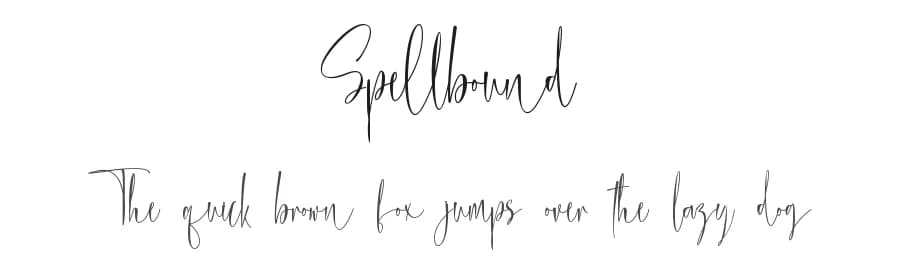 Spellbound
The quick brown fox jumps over the lazy dog